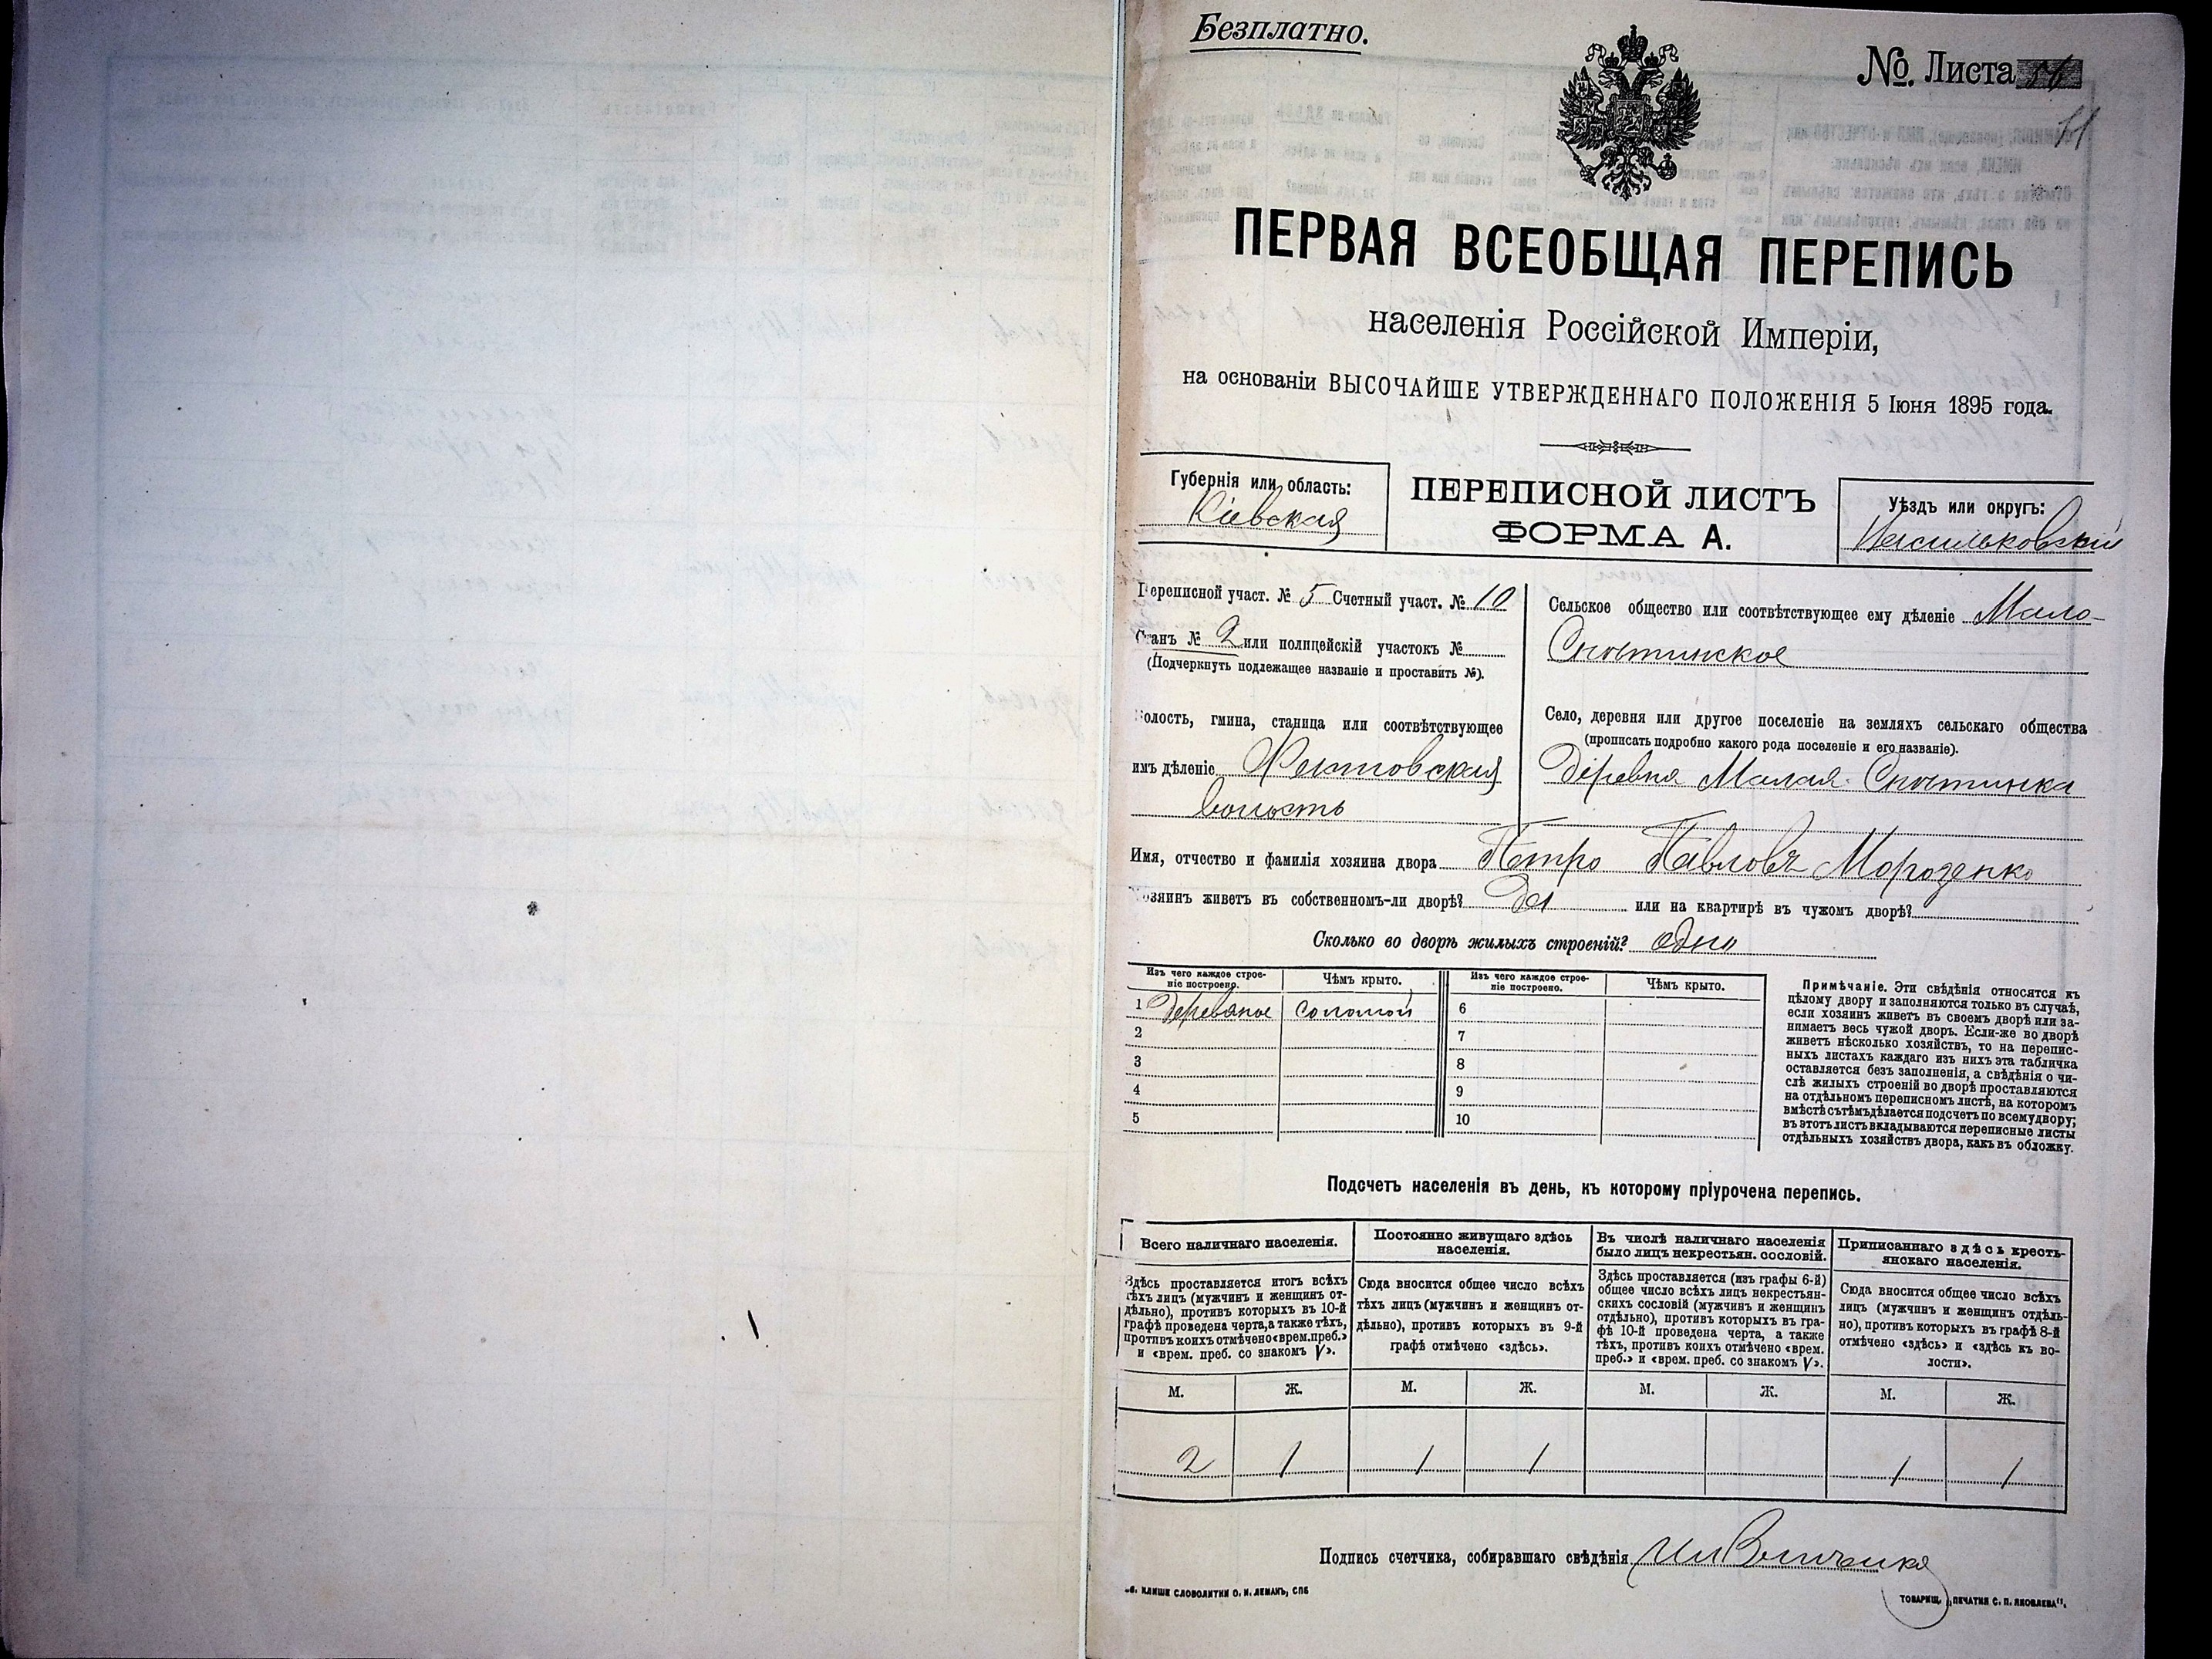 Безплатно.
№. Листа
ПЕРВАЯ ВСЕОБЩАЯ ПЕРЕПИСЬ
населенія Россійской Имперіи,
на основаніи ВЫСОЧАЙШЕ УТВЕРЖДЕННАГО ПОЛОЖЕНІЯ 5 Іюня 1895 года.
Губернія или область:
Кіевская
ПЕРЕПИСНОЙ ЛИСТЪ
ФОРМА А.
Уѣздъ или округъ:
Васильковскій
Переписной участ. № 5 Счетный участ. № 10
Станъ № 2 или полицейскій участокъ №
(Подчеркнуть подлежащее названіе и проставить №).
Волость, гмина, станица или соотвѣтствующее
имъ дѣленіе
волость
Сельское общество или соотвѣтствующее ему дѣленіе Мало-
Село, деревня или другое поселеніе на земляхъ сельскаго общества
(прописать подробно какого рода поселеніе и его названіе).
Малая
Имя, отчество и фамилія хозяина двора Петро Павловъ Мороденко
Хозяинъ живетъ въ собственномъ-ли дворѣ? Да или на квартирѣ въ чужомъ дворѣ?
Сколько во дворѣ жилыхъ строеній? одно
Изъ чего каждое строе-
ніе построено.
Чѣмъ крыто.
Изъ чего каждое строе-
ніе построено.
Чѣмъ крыто.
1 деревяное соломой 6
2 7
3 8
4 9
5 10
Примѣчаніе. Эти свѣдѣнія относятся къ
цѣлому двору и заполняются только въ случаѣ,
если хозяинъ живетъ въ своемъ дворѣ или за-
нимаетъ весь чужой дворъ. Если-же во дворѣ
живетъ нѣсколько хозяйствъ, то на перепис-
ныхъ листахъ каждаго изъ нихъ эта табличка
оставляется безъ заполненія, а свѣдѣнія о чи-
слѣ жилыхъ строеній во дворѣ проставляются
на отдѣльномъ переписномъ листѣ, на которомъ
вмѣстѣ съ тѣмъ дѣлается подсчетъ по всему двору;
въ этотъ листъ вкладываются переписные листы
отдѣльныхъ хозяйствъ двора, какъ въ обложку.
Подсчетъ населенія въ день, къ которому пріурочена перепись.
Всего наличнаго населенія.
Здѣсь проставляется итогъ всѣхъ
тѣхъ лицъ (мужчинъ и женщинъ от-
дѣльно), противъ которыхъ въ 10-й
графѣ проведена черта, а также тѣхъ,
противъ коихъ отмѣчено «врем. преб.»
и «врем. преб. со знакомъ V».
Постоянно живущаго здѣсь
населенія.
Сюда вносится общее число всѣхъ
тѣхъ лицъ (мужчинъ и женщинъ от-
дѣльно), противъ которыхъ въ 9-й
графѣ отмѣчено «здѣсь».
Въ числѣ наличнаго населенія
было лицъ некрестьян. сословій.
Здѣсь проставляется (изъ графы 6-й)
общее число всѣхъ лицъ некрестьян-
скихъ сословій (мужчинъ и женщинъ
отдѣльно), противъ которыхъ въ гра-
фѣ 10-й проведена черта, а также
тѣхъ, противъ коихъ отмѣчено «врем.
преб.» и «врем. преб. со знакомъ V».
Приписаннаго здѣсь кресть-
янскаго населенія.
Сюда вносится общее число всѣхъ
лицъ (мужчинъ и женщинъ отдѣль-
но), противъ которыхъ въ графѣ 8-й
отмѣчено «здѣсь» и «здѣсь къ во-
лости».
М. Ж. М. Ж. М. Ж. М. Ж.
2 1 1 1 1 1
Подпись счетчика, собиравшаго свѣдѣнія
КЛИШЕ СЛОВОЛИТНИ О. И. ЛЕМАНЪ, СПБ
ТОВАРИЩ. „ПЕЧАТНЯ С. П. ЯКОВЛЕВА".